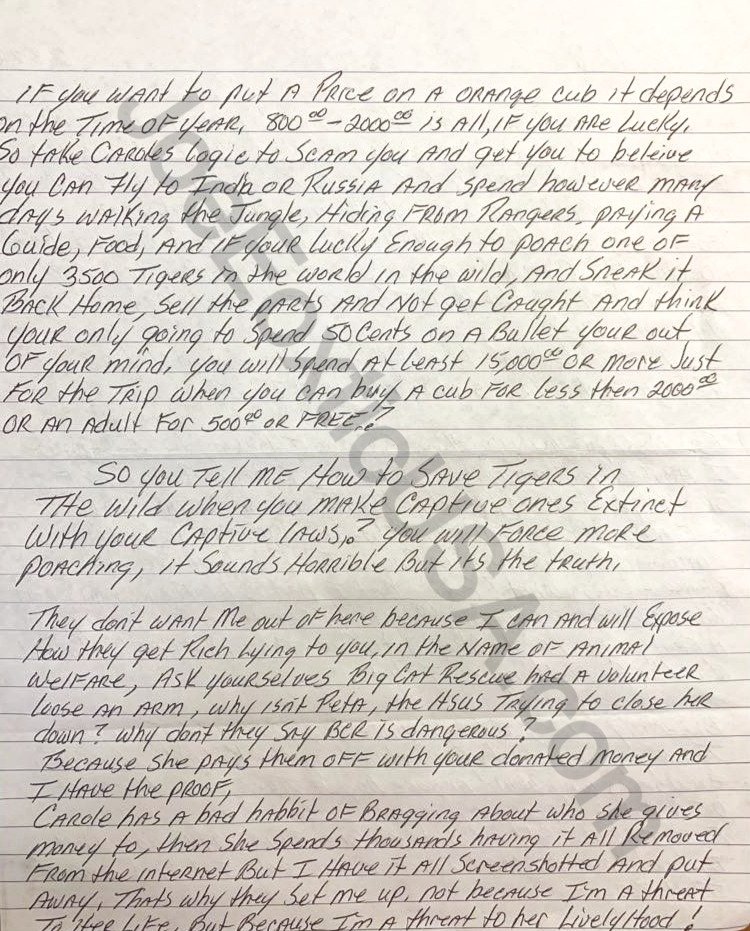 IF you want to put A Price on A orange cub it depends
on the Time of year, 800⁰⁰ - 2000⁰⁰ is All, IF you Are Lucky.
So take Caroles logic to Scam you And get you to beleive
you can fly to India or Russia And Spend however many
days walking the Jungle, Hiding From Rangers, paying A
Guide, Food, And if your lucky Enough to poach one of
only 3500 Tigers in the world in the wild, And Sneak it
Back Home, Sell the parts And Not get Caught And think
your only going to Spend 50 Cents on A Bullet your out
of your mind, you will Spend At Least 15,000⁰⁰ or more Just
For the Trip when you can buy A cub For less then 2000⁰⁰
or An Adult For 500⁰⁰ or FREE.?
So you Tell Me How to Save Tigers in
The wild when you make Captive ones Extinct
With your Captive laws.? you will Force more
poaching, it Sounds Horrible But its the truth,
They don't want Me out of here because I can And will Expose
How they get Rich Lying to you, in the Name of Animal
Welfare, Ask yourselves Big Cat Rescue had A volunteer
loose An Arm, why isn't Peta, the HSUS Trying to close her
down? why dont they Say BCR is dangerous?
Because She pays them off with your donated Money And
I Have the Proof,
Carole has a bad habbit of Bragging About who She gives
money to, then She Spends thousands having it All Removed
From the internet But I Have it All Screenshotted And put
Away, Thats why they Set me up, not because I'm A threat
To Her Life, But Because I'm A threat to her LivelyHood!
JoeExoticUSA.com